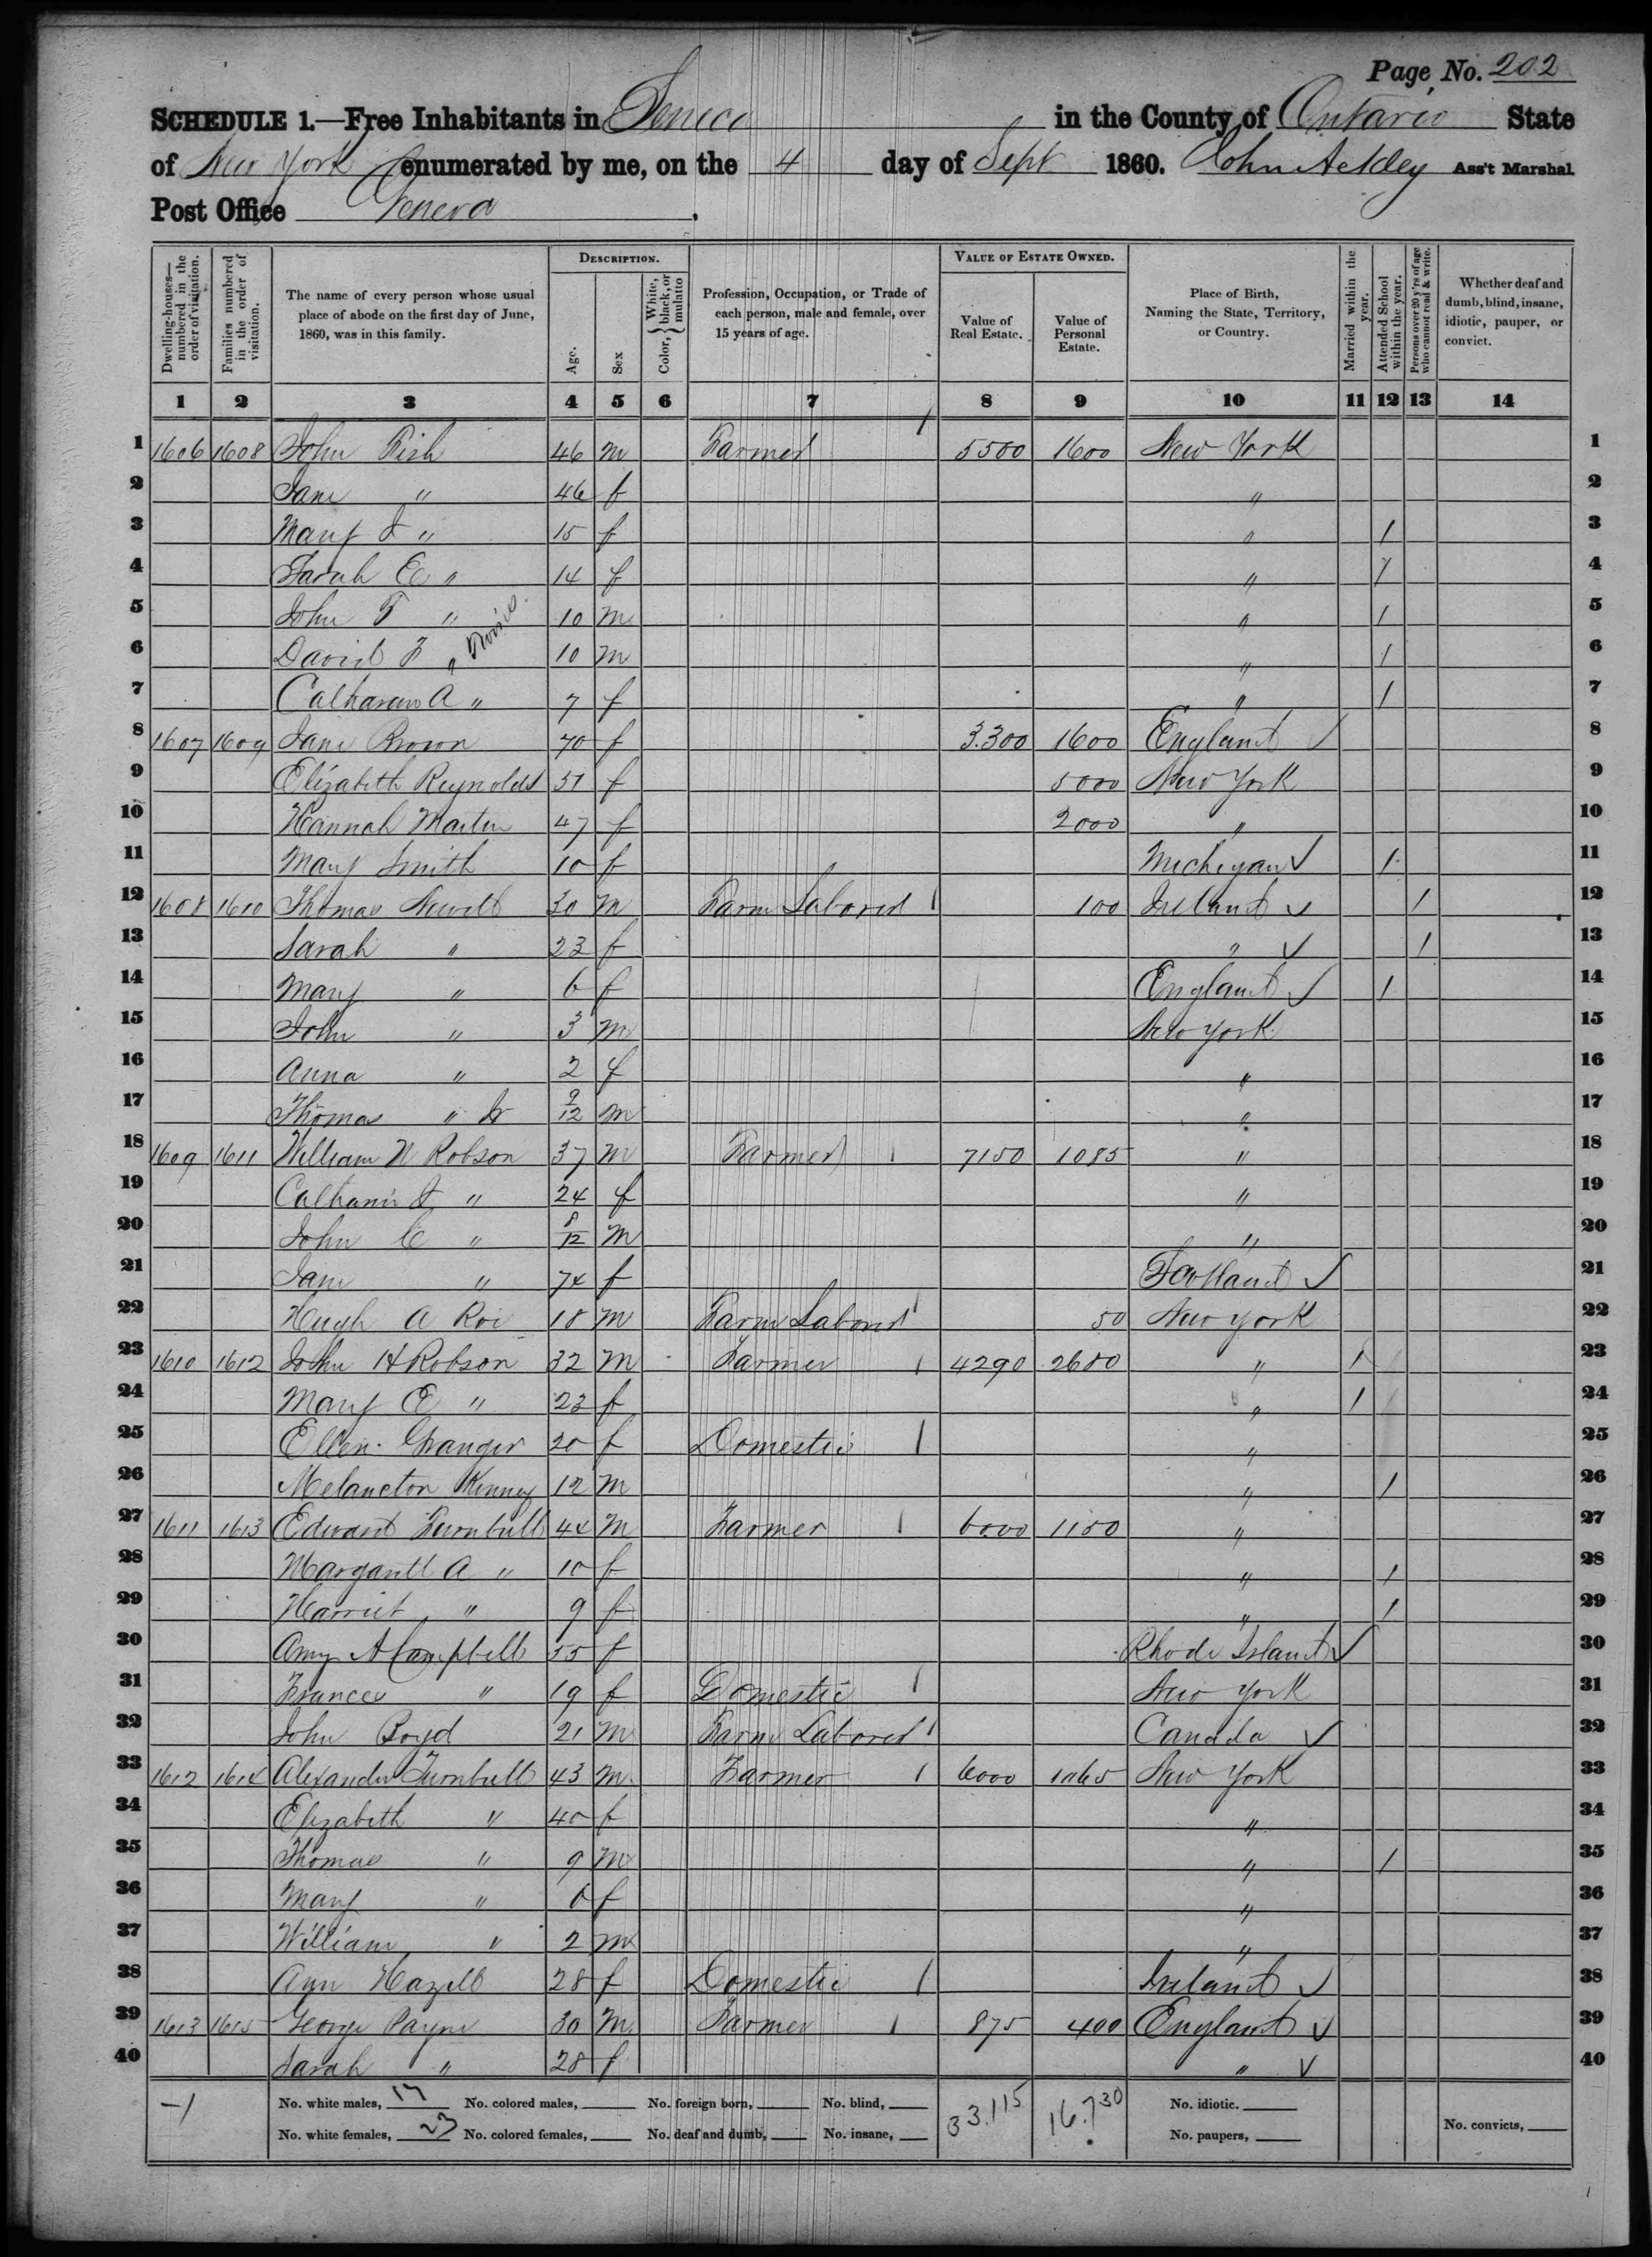 Page No. 202
SCHEDULE 1.—Free Inhabitants in Seneca in the County of Ontario State
of New York enumerated by me, on the 4 day of Sept 1860. John Ackley Ass't Marshal
Post Office Geneva,
Dwelling-houses—numbered in the order of visitation. Families numbered in the order of visitation. The name of every person whose usual place of abode on the first day of June, 1860, was in this family. DESCRIPTION. Age. Sex Color, White, black, or mulatto Profession, Occupation, or Trade of each person, male and female, over 15 years of age. VALUE OF ESTATE OWNED. Value of Real Estate. Value of Personal Estate. Place of Birth, Naming the State, Territory, or Country. Married within the year. Attended School within the year. Persons over 20 y'rs of age who cannot read & write. Whether deaf and dumb, blind, insane, idiotic, pauper, or convict.
1 2 3 4 5 6 7 8 9 10 11 12 13 14
1 1606 1608 John Fish 46 m Farmer 5500 1600 New York 1
2 Jane " 46 f " 2
3 Mary J " 15 f " 1 3
4 Sarah E " 14 f " 1 4
5 John T " 10 m " 1 5
6 David F " Twins 10 m " 1 6
7 Catharine A " 7 f " 1 7
8 1607 1609 Jane Brown 70 f 3.300 1600 England ✓ 8
9 Elizabeth Reynolds 51 f 5000 New York 9
10 Hannah Martin 47 f 2000 " 10
11 Mary Smith 10 f Michigan ✓ 1 11
12 1608 1610 Thomas 30 m Farm Laborer 1 100 Ireland ✓ 1 12
13 Sarah " 23 f " ✓ 1 13
14 Mary " 6 f England ✓ 1 14
15 John " 3 m New York 15
16 Anna " 2 f " 16
17 Thomas " Jr 9/12 m " 17
18 1609 1611 William N Robson 37 m Farmer 1 7150 1085 " 18
19 Catharine J " 24 f " 19
20 John C " 8/12 m " 20
21 Jane " 74 f Scotland ✓ 21
22 Hugh A Roe 18 m Farm Laborer 1 50 New York 22
23 1610 1612 John H Robson 32 m Farmer 1 4290 2680 " 1 23
24 Mary E " 23 f " 1 24
25 Ellen Granger 20 f Domestic 1 " 25
26 Melancton Kinney 12 m " 1 26
27 1611 1613 Edward Turnbull 44 m Farmer 1 6000 1150 " 27
28 Margarett A " 10 f " 1 28
29 Harriet " 9 f " 1 29
30 Amy A Campbell 55 f Rhode Island ✓ 30
31 Frances " 19 f Domestic 1 New York 31
32 John Boyd 21 m Farm Laborer 1 Canada ✓ 32
33 1612 1614 Alexander Turnbull 43 m Farmer 1 6000 1065 New York 33
34 Elizabeth " 40 f " 34
35 Thomas " 9 m " 1 35
36 Mary " 6 f " 36
37 William " 2 m " 37
38 Ann Hazell 28 f Domestic 1 Ireland ✓ 38
39 1613 1615 George Payne 30 m Farmer 1 875 400 England ✓ 39
40 Sarah " 28 f " ✓ 40
No. white males, 17 No. colored males, No. foreign born, No. blind, 33.115 16.730 No. idiotic.
No. white females, 23 No. colored females, No. deaf and dumb, No. insane, No. paupers, No. convicts,